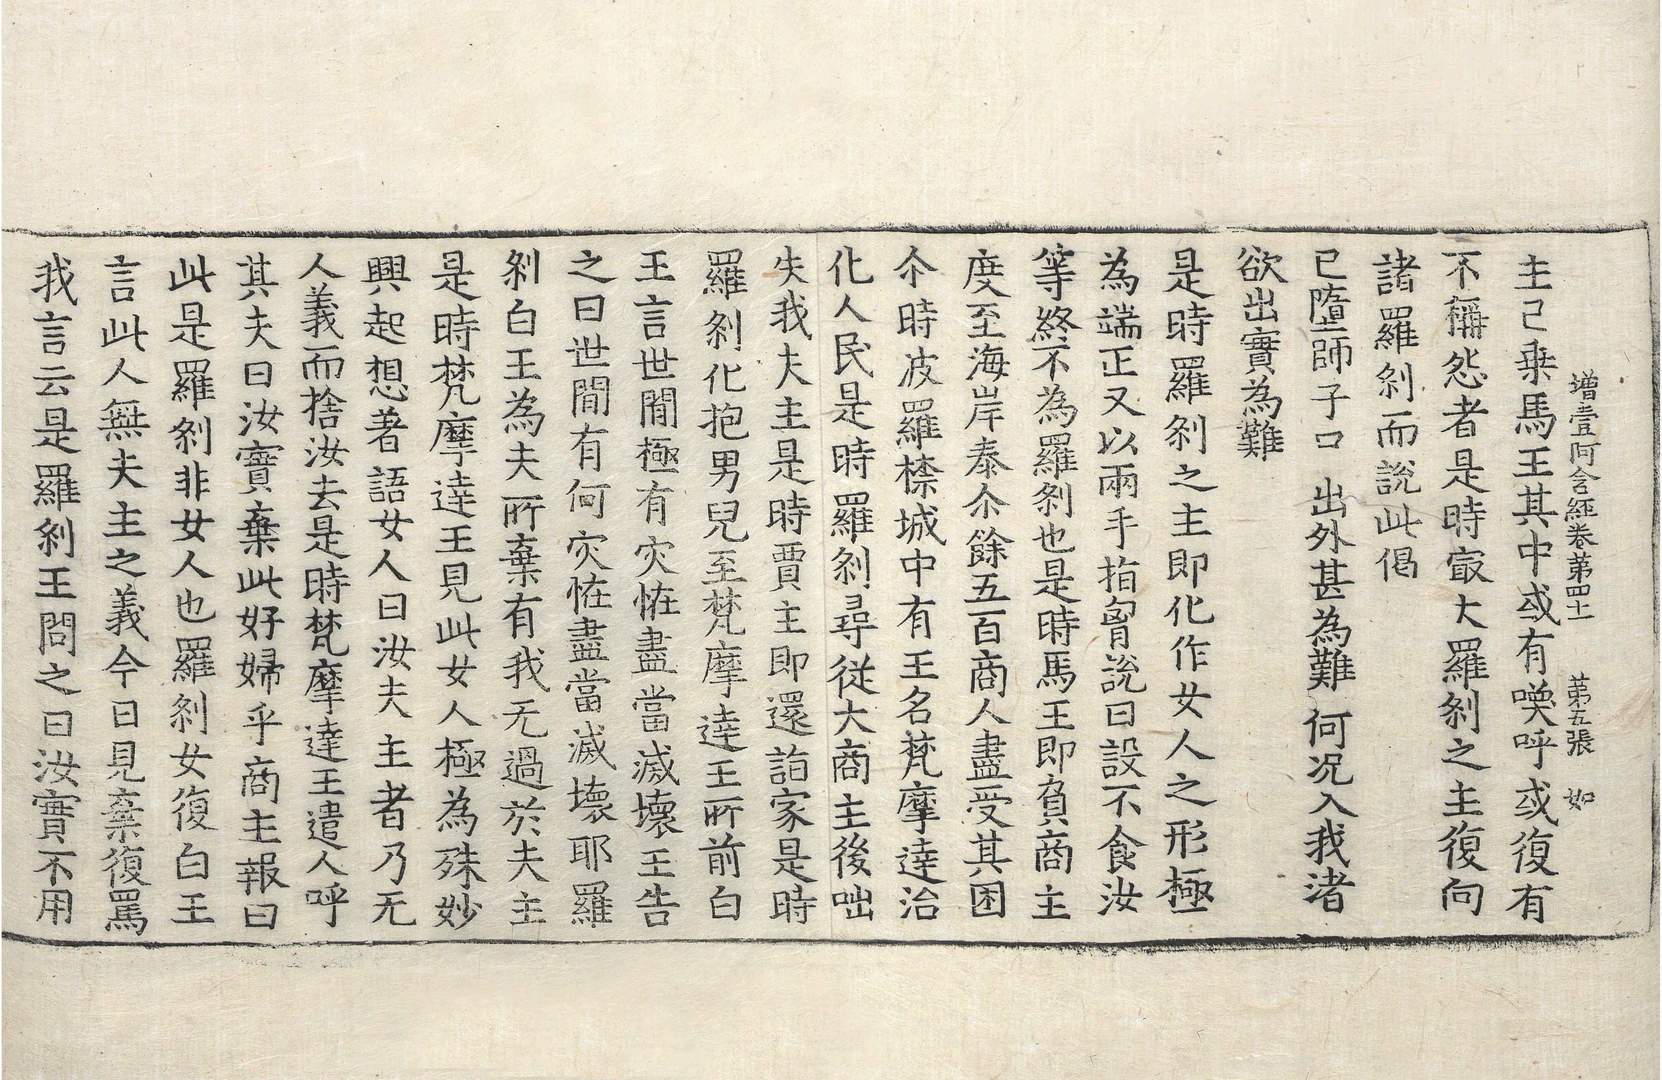 增壹阿含經卷第四十一 第五張 如
主已乗馬王其中或有喚呼或復有
不稱怨者是時㝡大羅刹之主復向
諸羅刹而說此偈
已墮師子口 出外甚為難 何況入我渚
欲出實為難
是時羅刹之主即化作女人之形極
為端正又以兩手指𦚾說曰設不食汝
等終不為羅刹也是時馬王即負商主
度至海岸泰尒餘五百商人盡受其困
尒時波羅㮈城中有王名梵摩達治
化人民是時羅刹尋從大商主後咄
失我夫主是時賈主即還詣家是時
羅刹化抱男兒至梵摩達王所前白
王言世間極有灾恠盡當滅壞王告
之曰世間有何灾恠盡當滅壞耶羅
刹白王為夫所棄有我无過於夫主
是時梵摩達王見此女人極為殊妙
興起想著語女人曰汝夫主者乃无
人義而捨汝去是時梵摩達王遣人呼
其夫曰汝實棄此好婦乎商主報曰
此是羅刹非女人也羅刹女復白王
言此人無夫主之義今日見棄復罵
我言云是羅刹王問之曰汝實不用